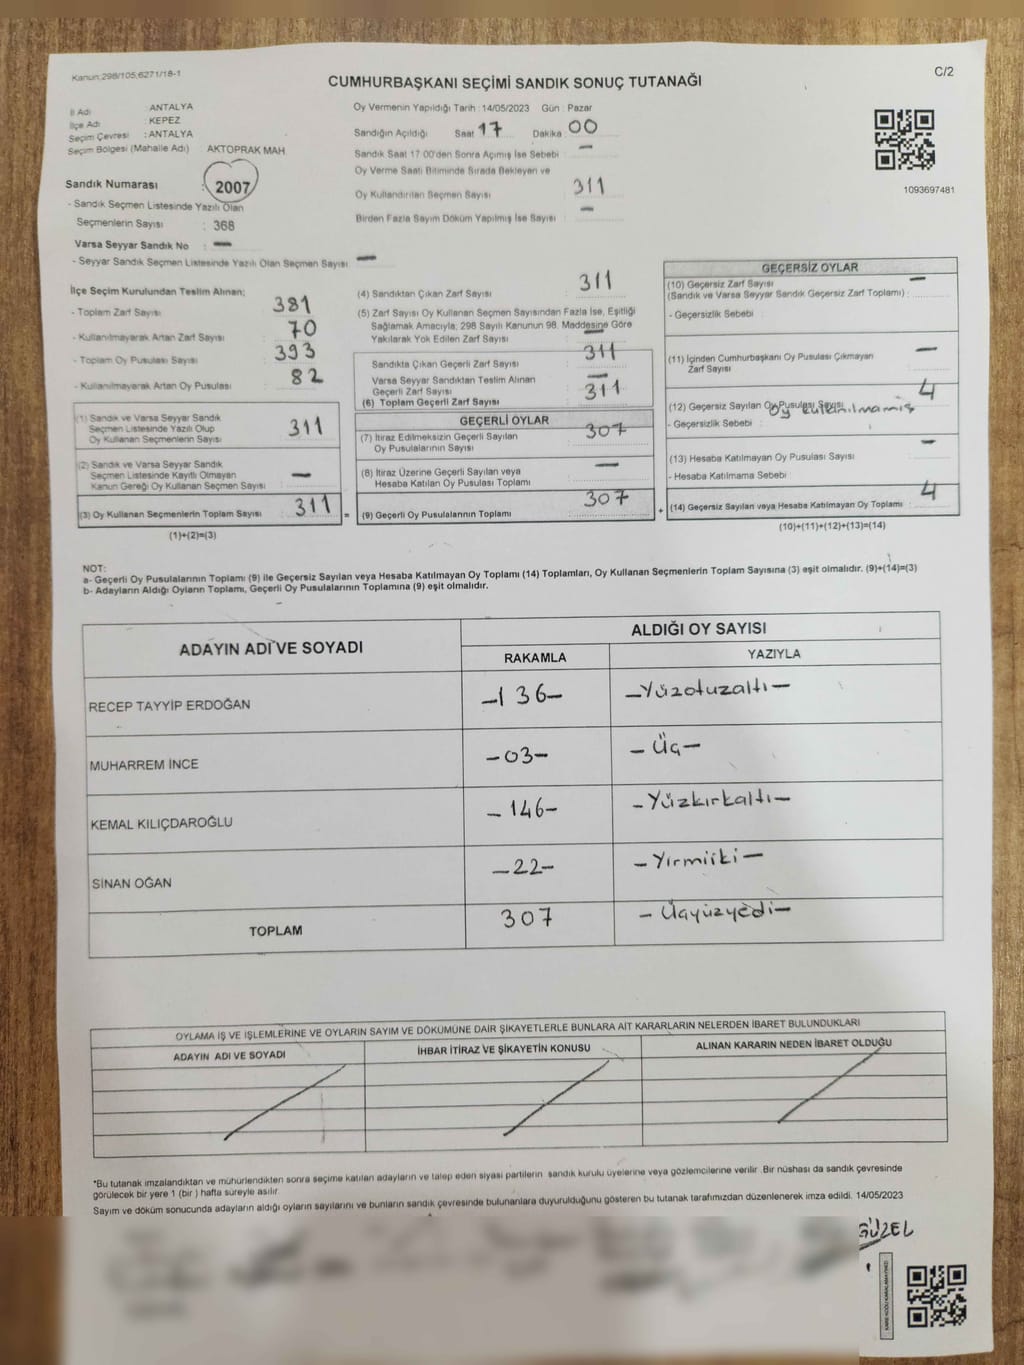 Kanun:298/105;6271/18-1
CUMHURBAŞKANI SEÇİMİ SANDIK SONUÇ TUTANAĞI
C/2
İl Adı : ANTALYA
İlçe Adı : KEPEZ
Seçim Çevresi : ANTALYA
Seçim Bölgesi (Mahalle Adı) AKTOPRAK MAH.
Sandık Numarası : 2007
- Sandık Seçmen Listesinde Yazılı Olan
Seçmenlerin Sayısı : 368
Varsa Seyyar Sandık No : —
- Seyyar Sandık Seçmen Listesinde Yazılı Olan Seçmen Sayısı : —
Oy Vermenin Yapıldığı Tarih : 14/05/2023 Gün : Pazar
Sandığın Açıldığı Saat 17 Dakika 00
Sandık Saat 17.00'den Sonra Açılmış İse Sebebi : —
Oy Verme Saati Bitiminde Sırada Bekleyen ve
Oy Kullandırılan Seçmen Sayısı : 311
Birden Fazla Sayım Döküm Yapılmış İse Sayısı : —
1093697481
İlçe Seçim Kurulundan Teslim Alınan;
- Toplam Zarf Sayısı : 381
- Kullanılmayarak Artan Zarf Sayısı : 70
- Toplam Oy Pusulası Sayısı : 393
- Kullanılmayarak Artan Oy Pusulası : 82
(1) Sandık ve Varsa Seyyar Sandık
Seçmen Listesinde Yazılı Olup
Oy Kullanan Seçmenlerin Sayısı : 311
(2) Sandık ve Varsa Seyyar Sandık
Seçmen Listesinde Kayıtlı Olmayan
Kanun Gereği Oy Kullanan Seçmen Sayısı : —
(3) Oy Kullanan Seçmenlerin Toplam Sayısı : 311
(1)+(2)=(3)
=
(4) Sandıktan Çıkan Zarf Sayısı : 311
(5) Zarf Sayısı Oy Kullanan Seçmen Sayısından Fazla İse, Eşitliği
Sağlamak Amacıyla; 298 Sayılı Kanunun 98. Maddesine Göre
Yakılarak Yok Edilen Zarf Sayısı : —
Sandıkta Çıkan Geçerli Zarf Sayısı : 311
Varsa Seyyar Sandıktan Teslim Alınan
Geçerli Zarf Sayısı : —
(6) Toplam Geçerli Zarf Sayısı : 311
GEÇERLİ OYLAR
(7) İtiraz Edilmeksizin Geçerli Sayılan
Oy Pusulalarının Sayısı : 307
(8) İtiraz Üzerine Geçerli Sayılan veya
Hesaba Katılan Oy Pusulası Toplamı : —
(9) Geçerli Oy Pusulalarının Toplamı : 307
+
GEÇERSİZ OYLAR
(10) Geçersiz Zarf Sayısı —
(Sandık ve Varsa Seyyar Sandık Geçersiz Zarf Toplamı) :
- Geçersizlik Sebebi :
(11) İçinden Cumhurbaşkanı Oy Pusulası Çıkmayan
Zarf Sayısı : —
(12) Geçersiz Sayılan Oy Pusulası Sayısı : 4
- Geçersizlik Sebebi : Oy kullanılmamış
(13) Hesaba Katılmayan Oy Pusulası Sayısı : —
- Hesaba Katılmama Sebebi :
(14) Geçersiz Sayılan veya Hesaba Katılmayan Oy Toplamı : 4
(10)+(11)+(12)+(13)=(14)
NOT:
a- Geçerli Oy Pusulalarının Toplamı (9) ile Geçersiz Sayılan veya Hesaba Katılmayan Oy Toplamı (14) Toplamları, Oy Kullanan Seçmenlerin Toplam Sayısına (3) eşit olmalıdır. (9)+(14)=(3)
b- Adayların Aldığı Oyların Toplamı, Geçerli Oy Pusulalarının Toplamına (9) eşit olmalıdır.
ADAYIN ADI VE SOYADI
ALDIĞI OY SAYISI
RAKAMLA YAZIYLA
RECEP TAYYİP ERDOĞAN -136- -Yüzotuzaltı-
MUHARREM İNCE -03- -Üç-
KEMAL KILIÇDAROĞLU -146- -Yüzkırkaltı-
SİNAN OĞAN -22- -Yirmiiki-
TOPLAM 307 -Üçyüzyedi-
OYLAMA İŞ VE İŞLEMLERİNE VE OYLARIN SAYIM VE DÖKÜMÜNE DAİR ŞİKAYETLERLE BUNLARA AİT KARARLARIN NELERDEN İBARET BULUNDUKLARI
ADAYIN ADI VE SOYADI İHBAR İTİRAZ VE ŞİKAYETİN KONUSU ALINAN KARARIN NEDEN İBARET OLDUĞU
*Bu tutanak imzalandıktan ve mühürlendikten sonra seçime katılan adayların ve talep eden siyasi partilerin sandık kurulu üyelerine veya gözlemcilerine verilir. Bir nüshası da sandık çevresinde
görülecek bir yere 1 (bir) hafta süreyle asılır.
Sayım ve döküm sonucunda adayların aldığı oyların sayılarını ve bunların sandık çevresinde bulunanlara duyurulduğunu gösteren bu tutanak tarafımızdan düzenlenerek imza edildi. 14/05/2023
GÜZEL